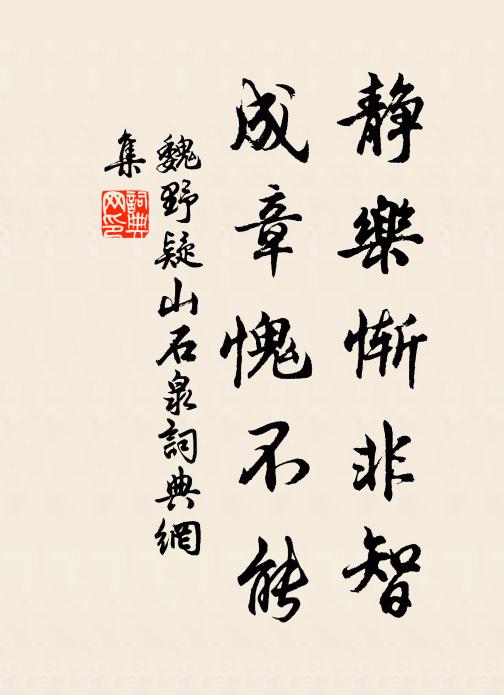 靜樂慚非智
成章愧不能
魏野疑山石泉詞典網
集
詞典網印